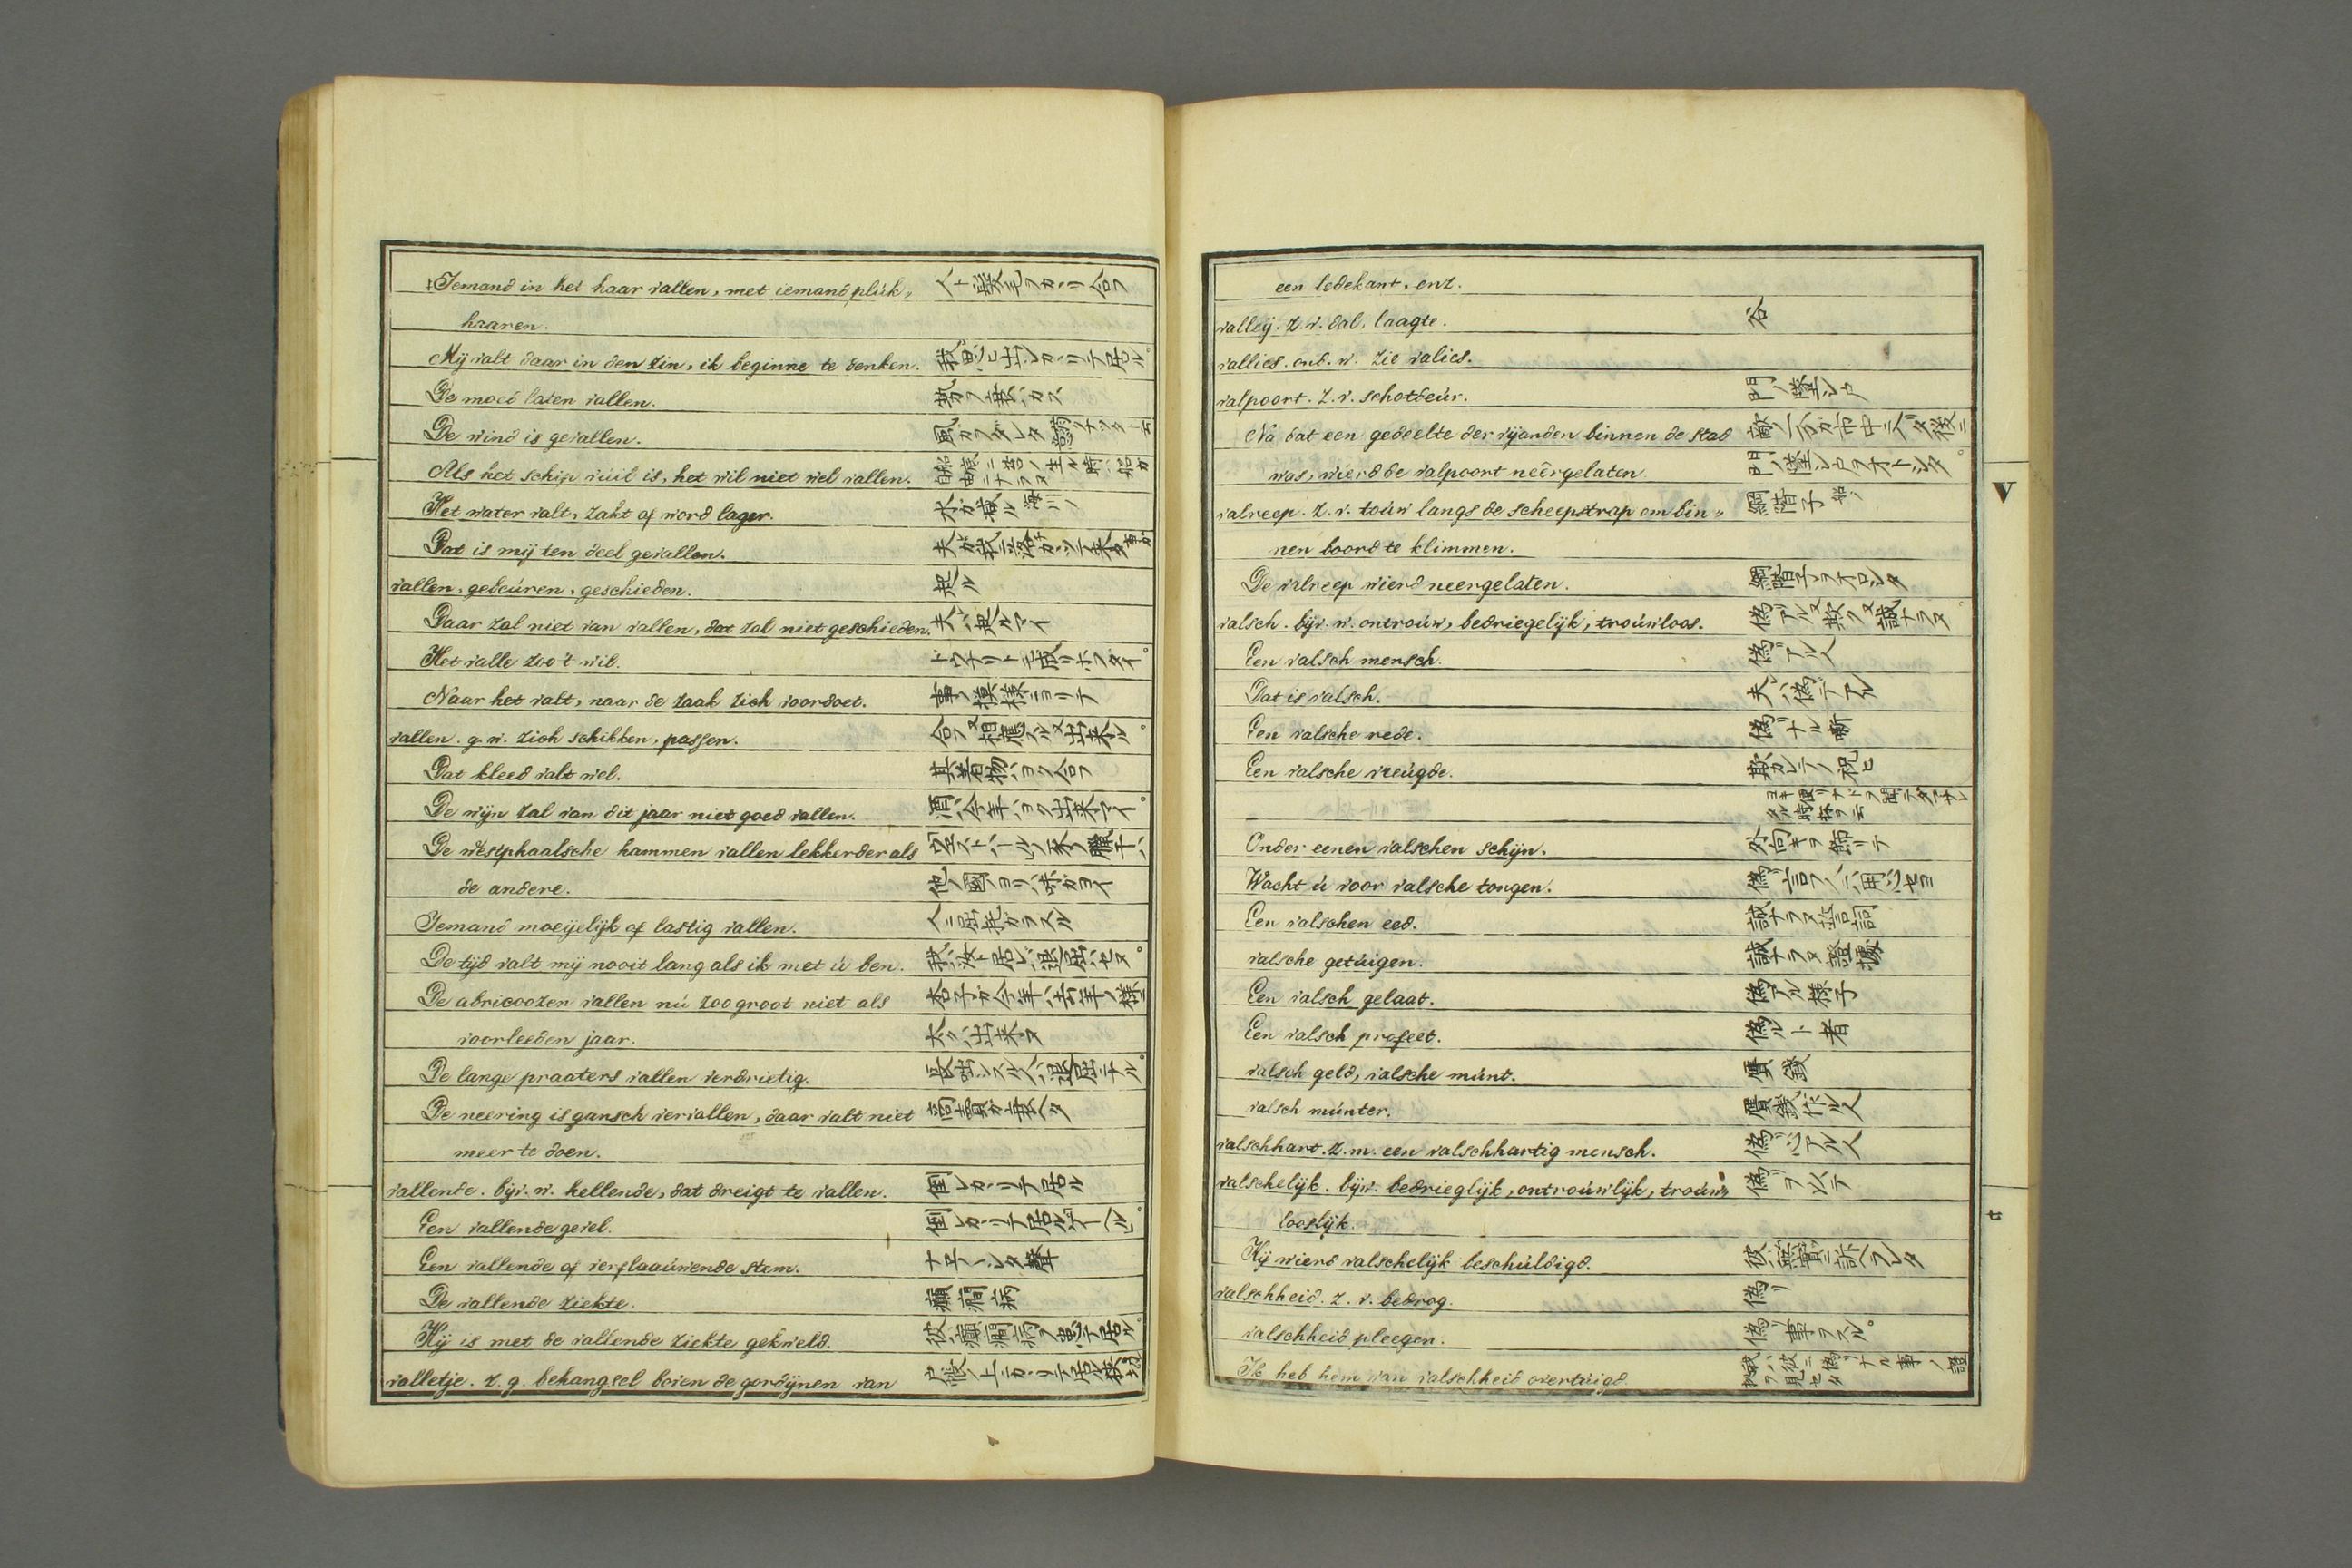 Iemand in het haar vallen, met iemand plúk„ 人ト髪毛ヲカリ合フ
haaren.
Mij valt daar in den zin, ik beginne te denken. 我思ヒ出シカヽリテ居ル。
De moed laten vallen. 勢ヲ衰ヘカス
De wind is gevallen.
Als het schip vúil is, het wil niet wel vallen.
Het water valt, zakt of word lager. 水ガ減ル 海川ノ
Dat is mij ten deel gevallen.
vallen, gebeúren, geschieden. 起ル
Daar zal niet van vallen, dat zal niet geschieden. 夫ハ起ルマイ
Het valle zoo 't wil.
Naar het valt, naar de zaak zich voordoet. 事ノ模様ニヨリテ
vallen. g. w. zich schikken, passen. 合フ又相應スル又出来ル。
Dat kleed valt wel. 其着物ハヨク合フ
De wijn zal van dit jaar niet goed vallen. 酒ハ今年ハヨク出来マイ。
De westphaalsche hammen vallen lekkerder als
de andere. 他ノ國ノヨリハ味ガヨイ
Iemand moeijelijk of lastig vallen.
De tijd valt mij nooit lang als ik met ú ben. 我ハ汝ト居レハ退屈ハセヌ。
De abricoozen vallen nú zoo groot niet als 杏子ガ今年ハ去年ノ様ニ
voorleeden jaar. 太クハ出来ヌ
De lange praaters vallen verdrietig.
De neering is gansch vervallen, daar valt niet 商賣ガ衰ヘタ
meer te doen.
vallende. bijv. w. hellende, dat dreigt te vallen. 倒レカヽリテ居ル
Een vallende gevel. 倒レカヽリテ居ルゲーヘル。
Een vallende of verflaaúwende stem.
De vallende ziekte. 癲癇病
Hij is met de vallende ziekte gekweld. 彼ハ癲癇病ヲ患テ居ル。
valletje. z. g. behangsel boven de gordijnen van
een ledekant. enz.
valleij. z. v. dal, laagte. 谷
vallies. ond. w. zie valies.
valpoort. z. v. schotdeúr. 門ノ墜シ戸
Na dat een gedeelte der vijanden binnen de stad 敵ノ一分ガ市中ニ入タ後ニ
was, wierd de valpoort neêrgelaten 門ノ墜シ戸ヲオトシタ。
valreep. z. v. toúw langs de scheepstrap om bin„ 綱階子 船ノ
nen boord te klimmen.
De valreep wierd neergelaten. 綱階子ヲオロシタ
valsch. bijv. w. ontroúw, bedriegelijk, troúwloos. 偽アル又欺ク又誠ナラヌ。
Een valsch mensch. 偽アル人
Dat is valsch. 夫ハ偽デアル
Een valsche rede. 偽ナル噺
Een valsche vreúgde.
Onder eenen valschen schijn. 外向キヲ飾リテ
Wacht ú voor valsche tongen. 偽言フ人ハ用心セヨ
Een valschen eed. 誠ナラヌ誓詞
valsche getúigen. 誠ナラヌ證據
Een valsch gelaat. 偽アル様子
Een valsch profeet.
valsch geld, valsche múnt. 贋錢
valsch múnter. 贋錢作ル人
valschhart. z. m. een valschhartig mensch. 偽心アル人
valschelijk. bijw. bedrieglijk, ontroúwlijk, troúw„ 偽ヲ以テ
looslijk.
Hij wierd valschelijk beschúldigd. 彼ハ無實ニ訴ヘラレタ
valschheid. z. v. bedrog. 偽リ
valschheid pleegen. 偽事ヲスル。
Ik heb hem van valschheid overtúigd.
V